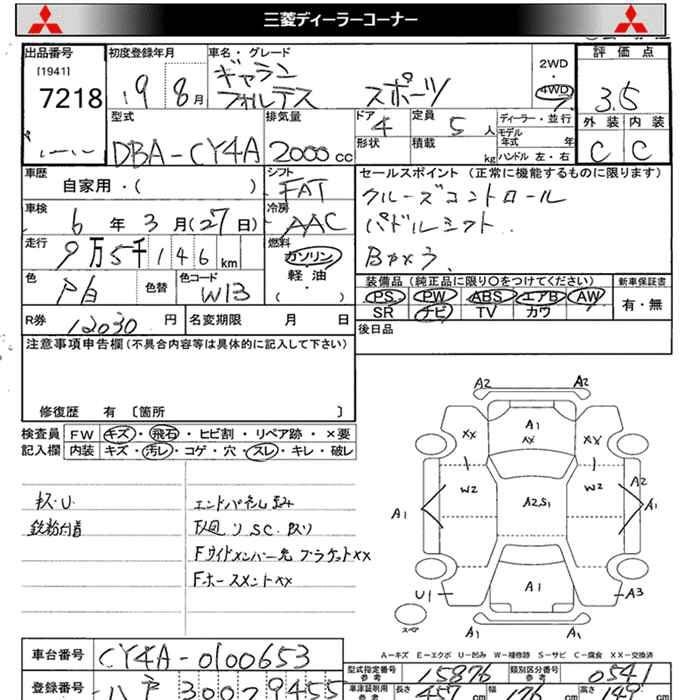 三菱ディーラーコーナー
出品番号 初度登録年月 車名・グレード 2WD ・ 4WD 評価点
[1941]
7218 19 8月 ギャラン フォルテス スポーツ 3.5
型式 排気量 ドア 4 定員 5人 ディーラー・並行 外装 内装
DBA-CY4A 2000cc 形状 積載 kg モデル年式 年 ハンドル 左・右 C C
車歴 自家用・( ) シフト FAT セールスポイント (正常に機能するものに限ります)
車検 6年3月(27日) 冷房 AAC クルーズコントロール
パドルシフト
走行 9万5千146km 燃料 ガソリン 軽油 ( ・ )
Bカメラ
色 色替 色コード W13 装備品 (純正品に限り○をつけてください) 新車保証書
PS PW ABS エアB AW 有・無
SR ナビ TV カワ
R券 12030円 名変期限 月 日 後日品
注意事項申告欄 (不具合内容等は具体的に記入して下さい)
修復歴 有 〔箇所 〕
検査員 FW キズ・飛石・ヒビ割・リペア跡・×要
記入欄 内装 キズ・汚レ・コゲ・穴・スレ・キレ・破レ
キズ・U
鉄粉付着
エンドパネル歪み
下廻りSC・サリ
Fサイドメンバー先ブラケットXX
Fホースメントxx
A2 A2
A1
XX XX XX
W2 A2S1 W2 A2
A1 A1
U1 A1 A3
スペア A1 A1
A-キズ E-エクボ U-凹み W-補修跡 S-サビ C-腐食 XX-交換済
車台番号 CY4A-0100653
型式指定番号 参考 15876 類別区分番号 参考 0541
登録番号 八戸 300 9455
車庫証明用 参考 長さ 457cm 幅 176cm 高さ 149cm